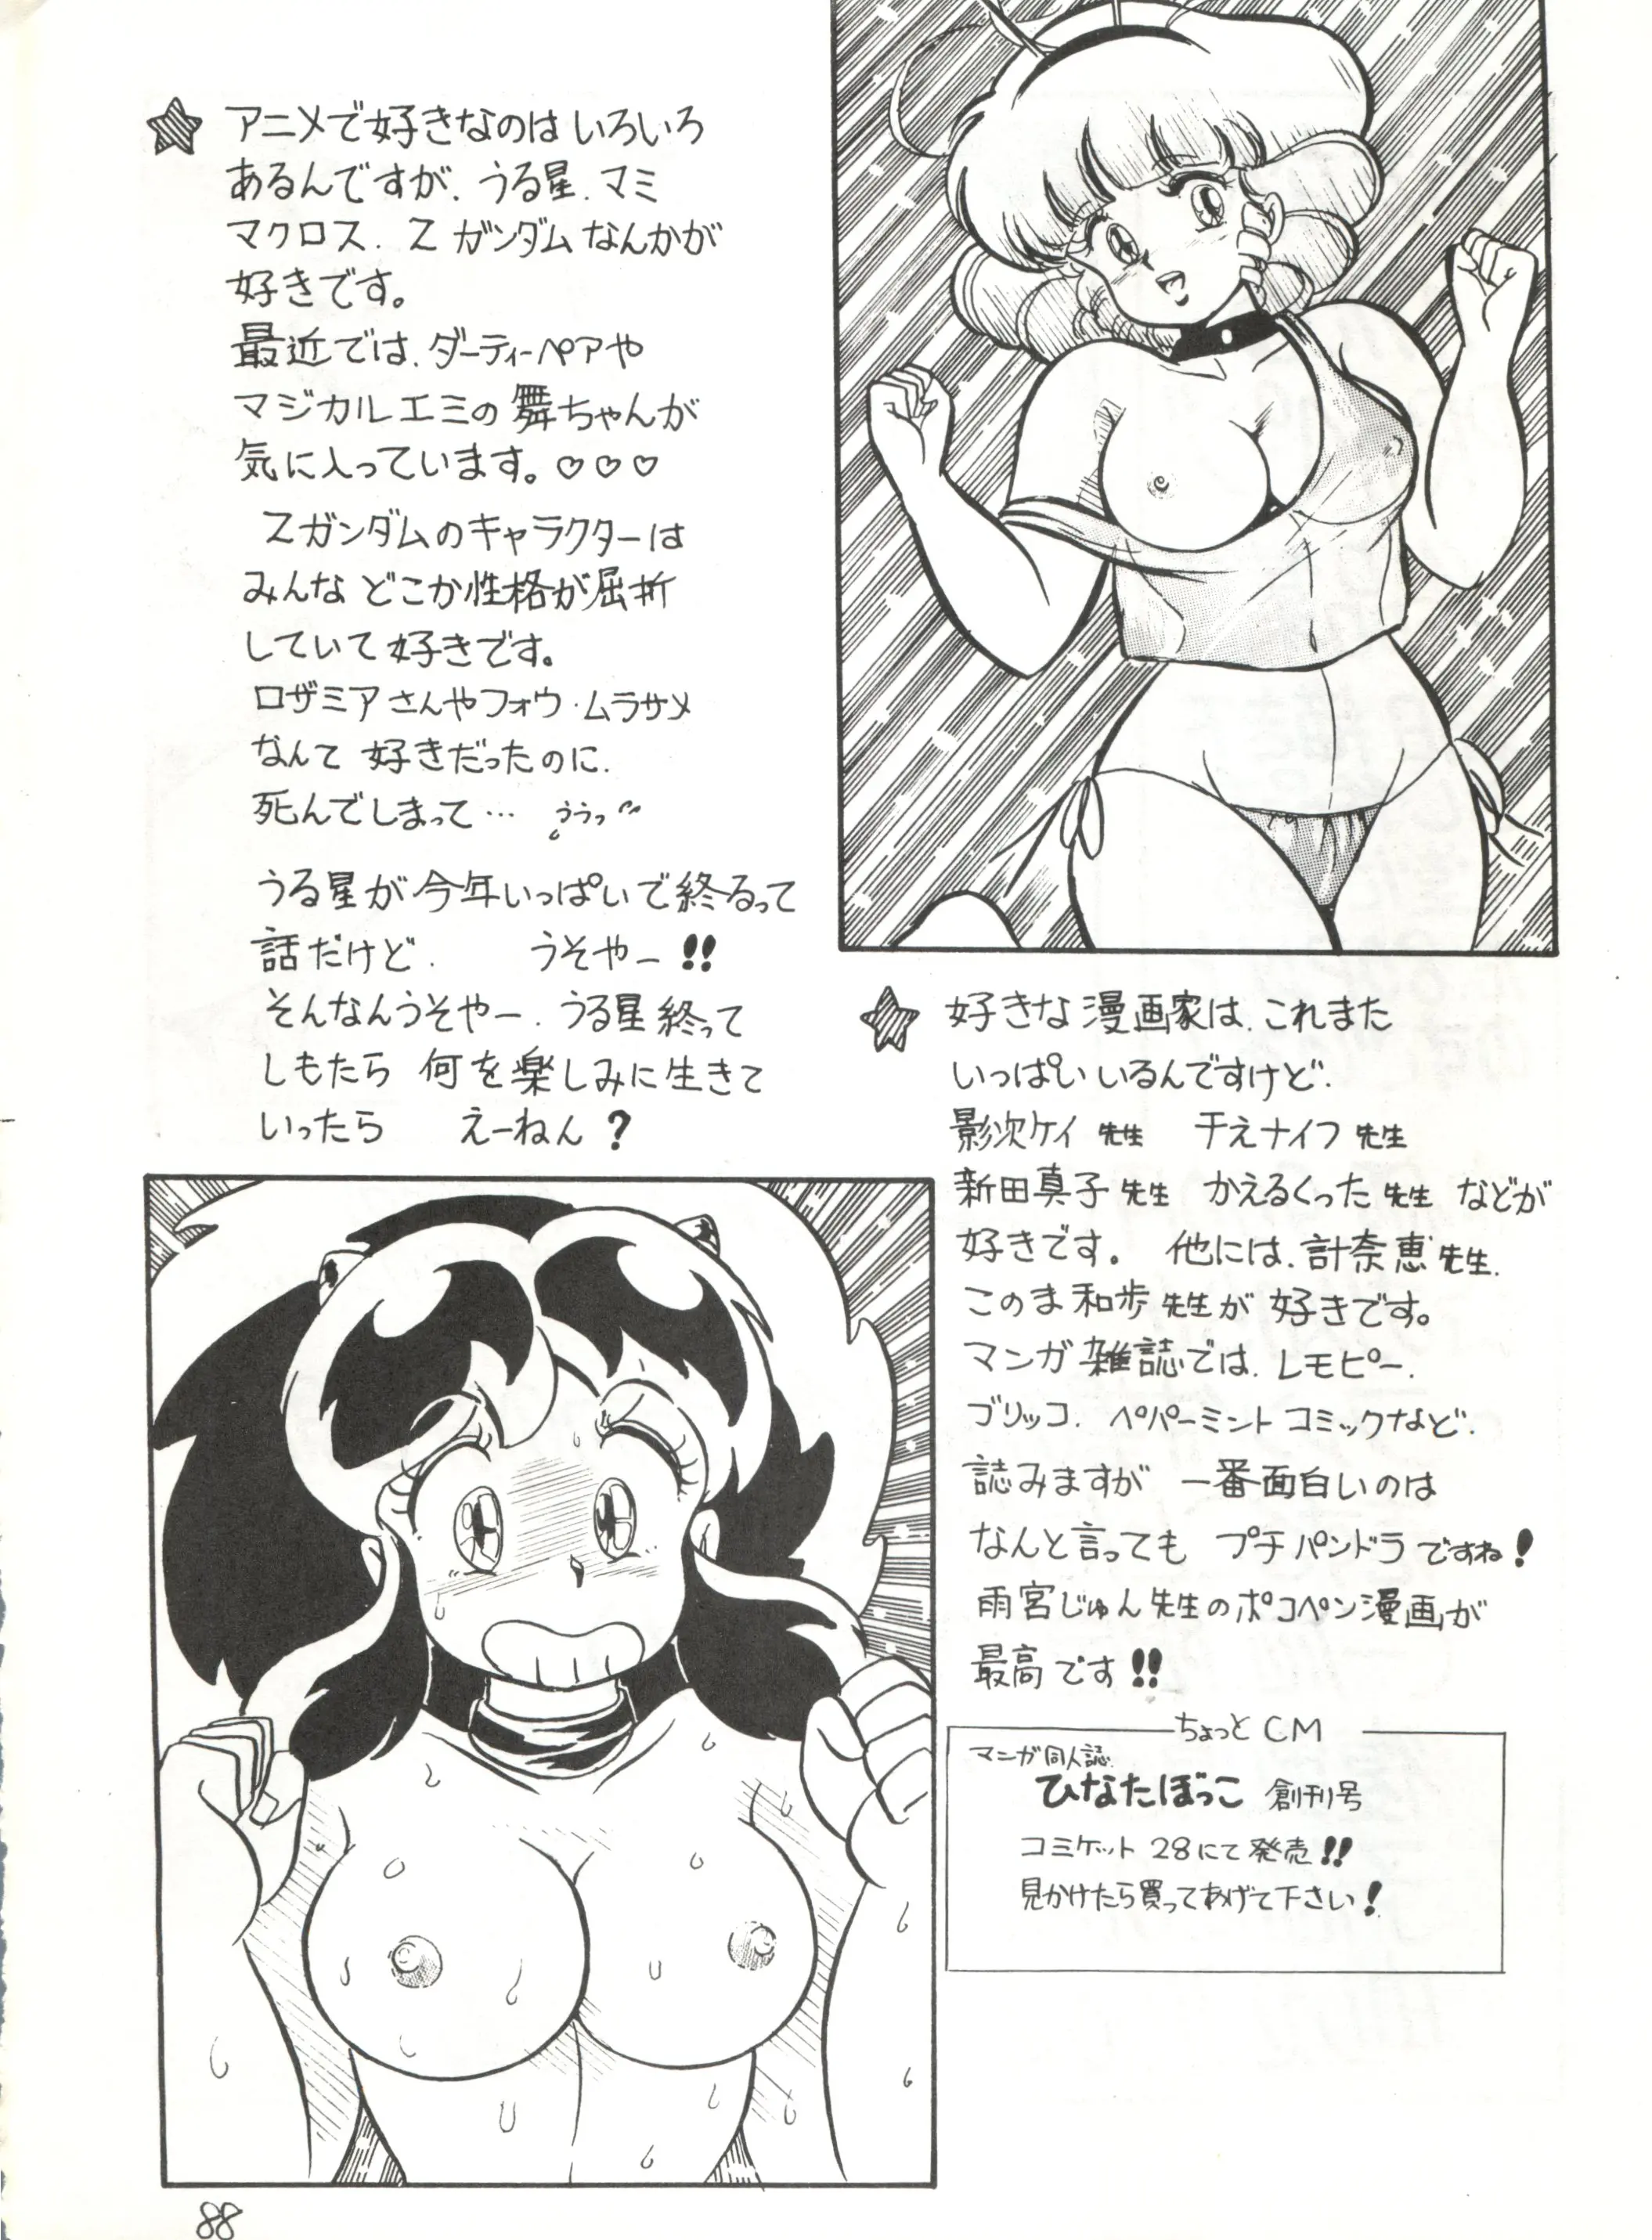 アニメで好きなのは いろいろ
あるんですが、うる星、マミ
マクロス、Z ガンダム なんかが
好きです。
最近では、ダーティーペアや
マジカルエミの 舞ちゃんが
気に入っています。♡♡♡
Zガンダムのキャラクターは
みんな どこか性格が屈折
していて 好きです。
ロザミアさんやフォウ・ムラサメ
なんて 好きだったのに、
死んでしまって… ううっ
うる星が今年いっぱいで終るって
話だけど、 うそやー!!
そんなんうそやー、うる星終って
しもたら 何を楽しみに生きて
いったら えーねん?
好きな漫画家は、これまた
いっぱい いるんですけど、
影次ケイ 先生 千えナイフ 先生
新田真子 先生 かえるくった 先生 などが
好きです。 他には、計奈恵 先生、
このま和歩 先生が 好きです。
マンガ雑誌では、レモピー、
ブリッコ、ペパーミント コミックなど、
読みますが 一番面白いのは
なんと言っても プチパンドラですね!
雨宮じゅん先生のポコペン漫画が
最高です!!
ちょっとCM
マンガ同人誌
ひなたぼっこ 創刊号
コミケット 28にて発売!!
見かけたら買ってあげて下さい!
88